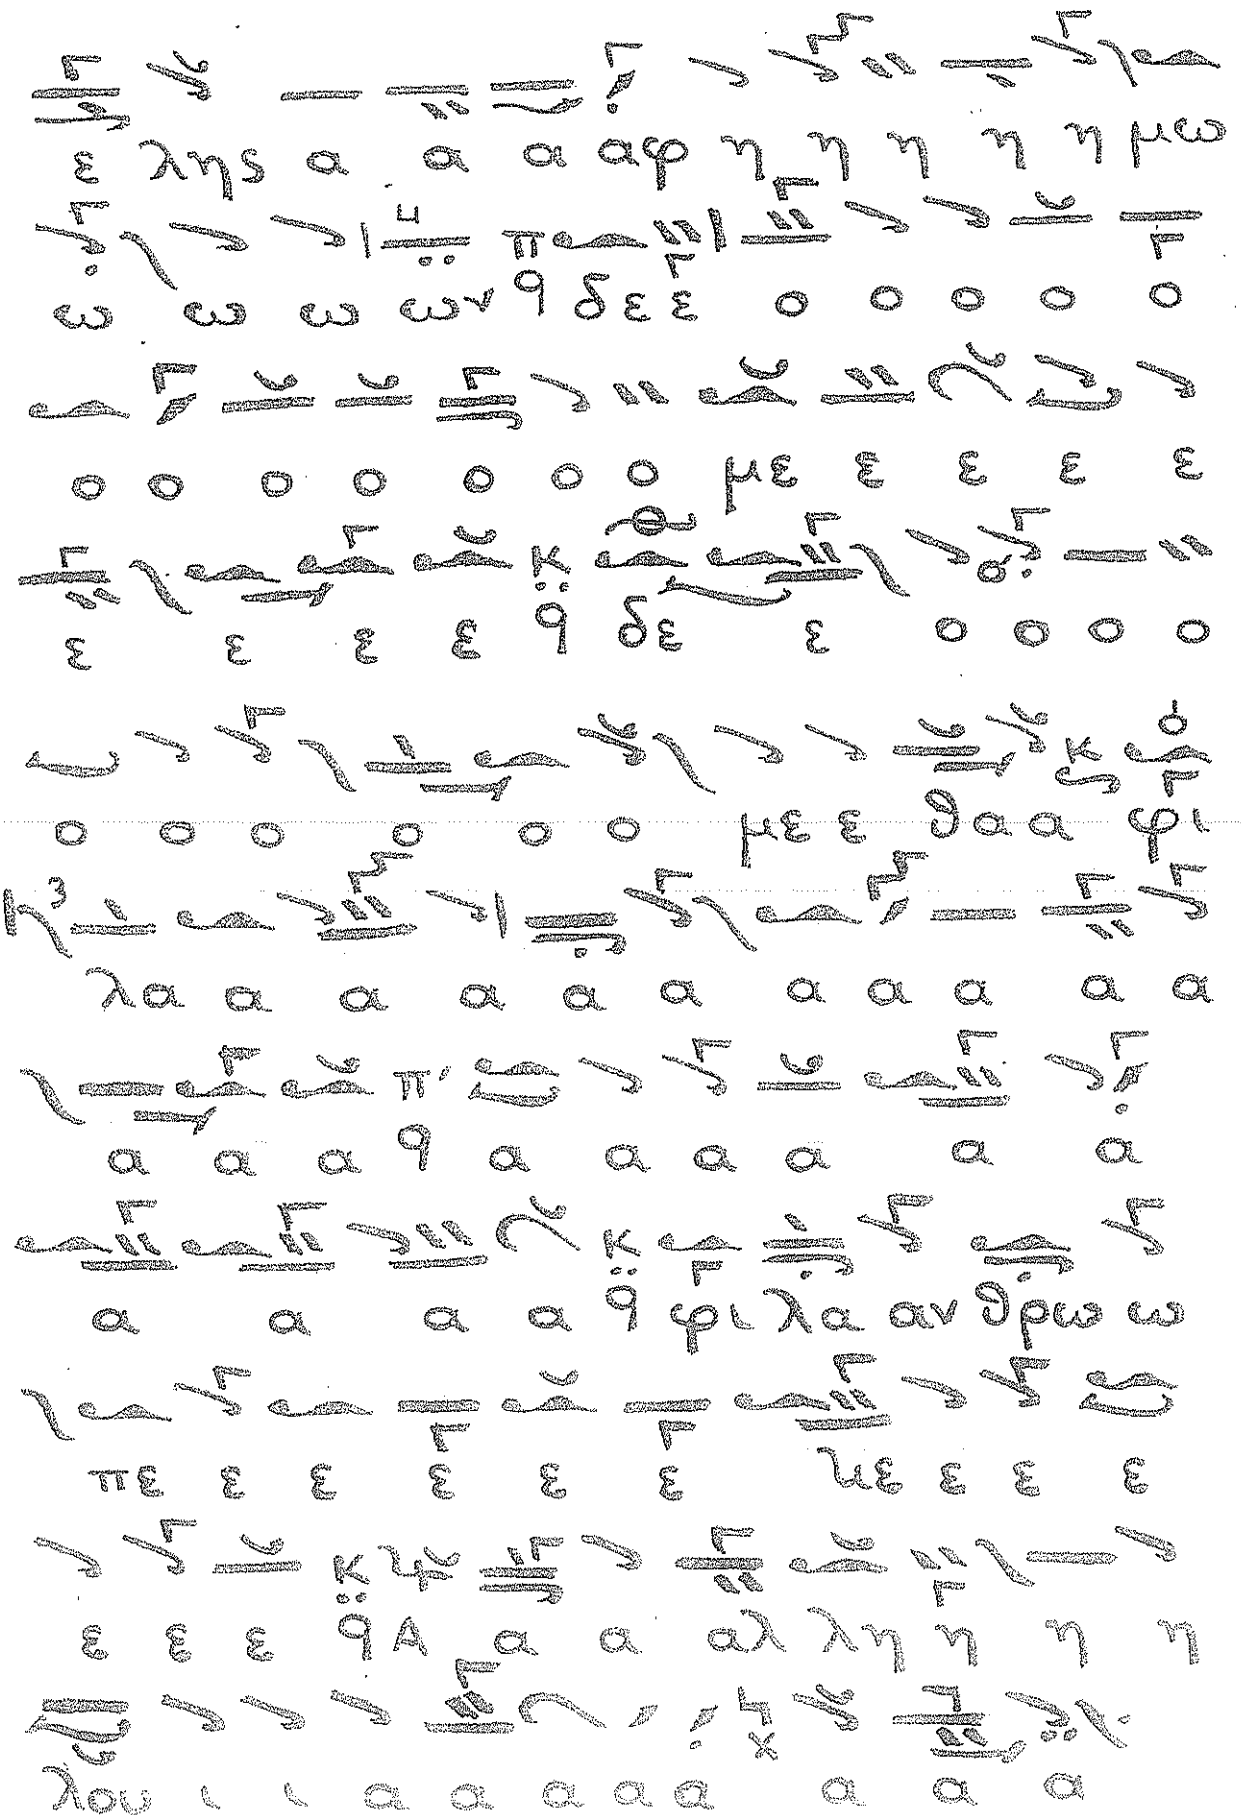 ε λης α α α αφ η η η η η μω
ω ω ω ων π q δε ε ο ο ο ο ο
ο ο ο ο ο ο ο με ε ε ε ε
ε ε ε ε κ q δε ε ο ο ο ο
ο ο ο ο ο ο με ε θα α κ φι
λα α α α α α α α α α α
α α α π' q α α α α α α
α α α α κ q φι λα αν θρω ω
πε ε ε ε ε ε με ε ε ε
ε ε ε κ q Α α α αλ λη η η η
λου ι ι α α α α α α α α